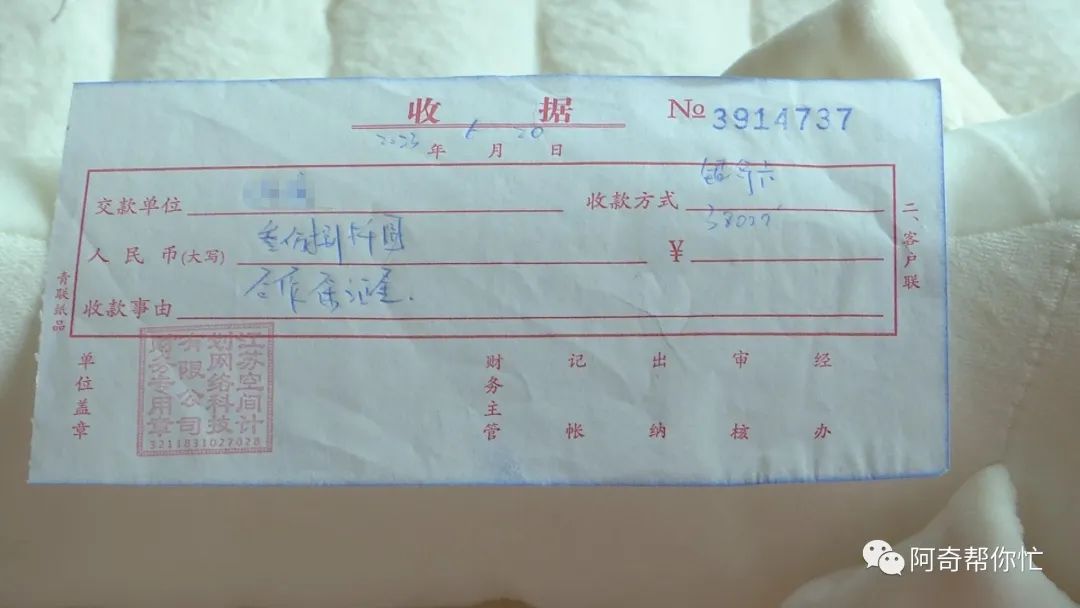 收 据 № 3914737
2023 年 月 20 日
交款单位 收款方式 银行卡
人民币(大写) 圆 ¥
收款事由 合作
二、客户联
青联纸品
单位盖章
江苏空间计划网络科技有限公司财务专用章
3211831027028
财务主管 记帐 出纳 审核 经办
阿奇帮你忙